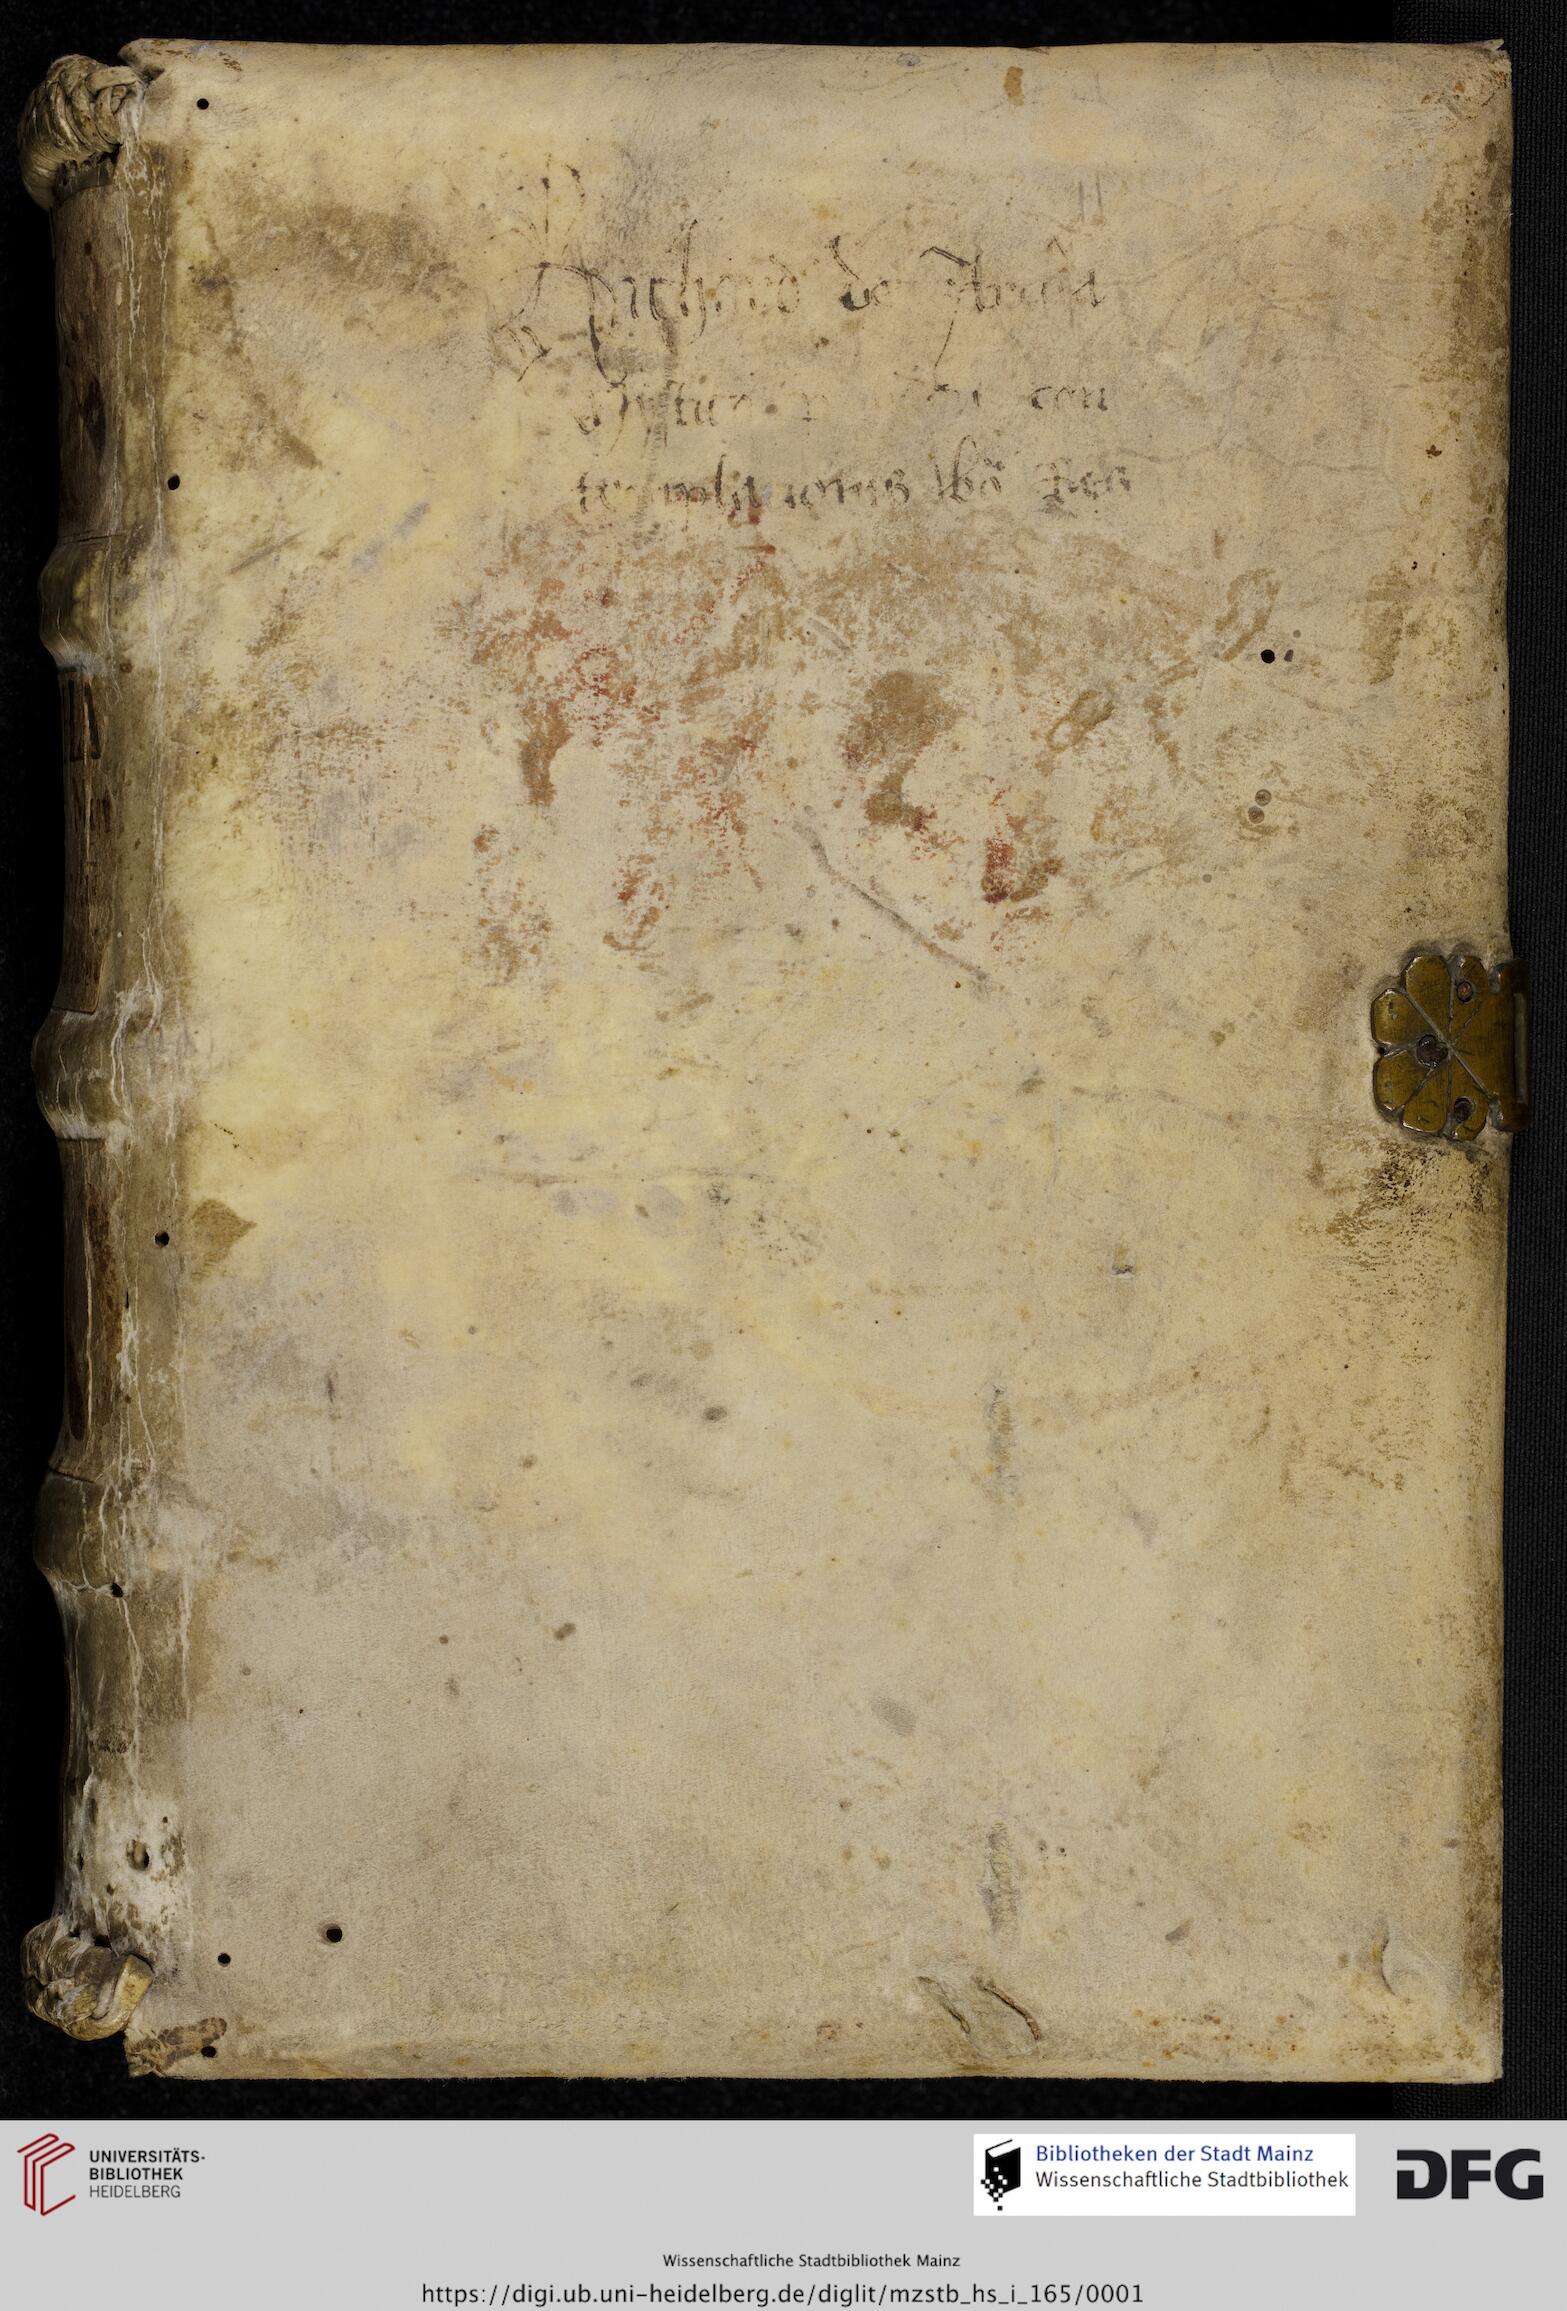 Richard de Archa
Mistica con
templacionis
UNIVERSITÄTS-
BIBLIOTHEK
HEIDELBERG
Bibliotheken der Stadt Mainz
Wissenschaftliche Stadtbibliothek
DFG
Wissenschaftliche Stadtbibliothek Mainz
https://digi.ub.uni-heidelberg.de/diglit/mzstb_hs_i_165/0001